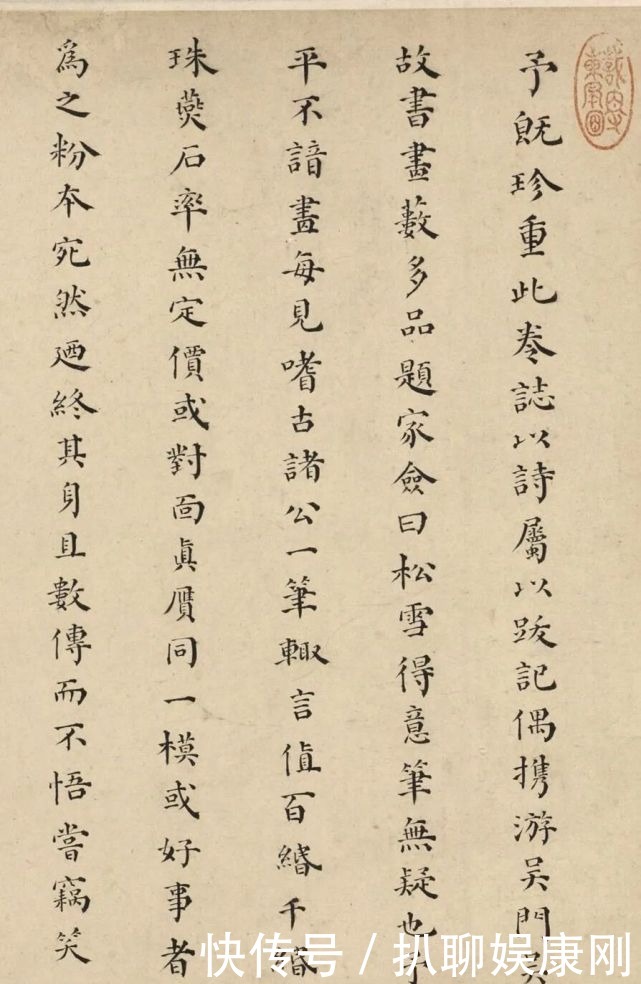 予既珍重此卷誌以詩屬以跋記偶携游吴門吴
故書畫藪多品題家僉曰松雪得意筆無疑也予
平不諳畫每見嗜古諸公一筆輙言值百緡千緡
珠燕石率無定價或對面真贋同一模或好事者
為之粉本宛然廼終其身且數傳而不悟嘗竊笑
快传号 / 扒聊娱康刚